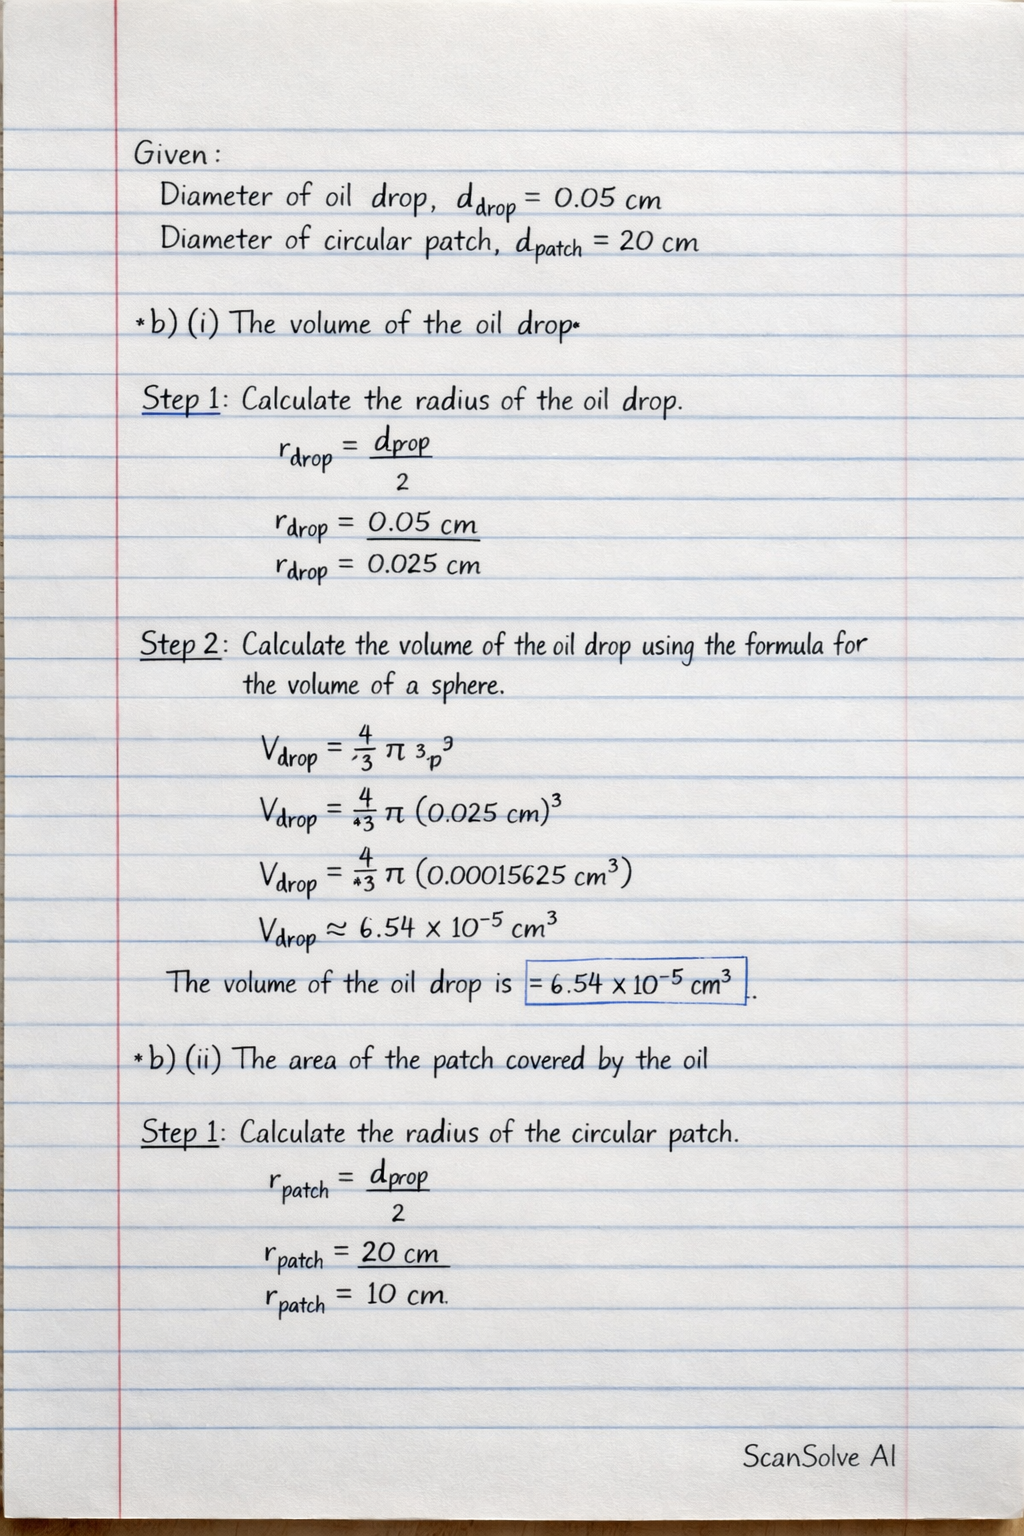 Given:
Diameter of oil drop, d_drop = 0.05 cm
Diameter of circular patch, d_patch = 20 cm
*b) (i) The volume of the oil drop•
Step 1: Calculate the radius of the oil drop.
r_drop = dprop
2
r_drop = 0.05 cm
r_drop = 0.025 cm
Step 2: Calculate the volume of the oil drop using the formula for
the volume of a sphere.
V_drop = 4/3 π 3.p³
V_drop = 4/*3 π (0.025 cm)³
V_drop = 4/*3 π (0.00015625 cm³)
V_drop ≈ 6.54 × 10⁻⁵ cm³
The volume of the oil drop is = 6.54 × 10⁻⁵ cm³.
*b) (ii) The area of the patch covered by the oil
Step 1: Calculate the radius of the circular patch.
r_patch = dprop
2
r_patch = 20 cm
r_patch = 10 cm.
ScanSolve AI